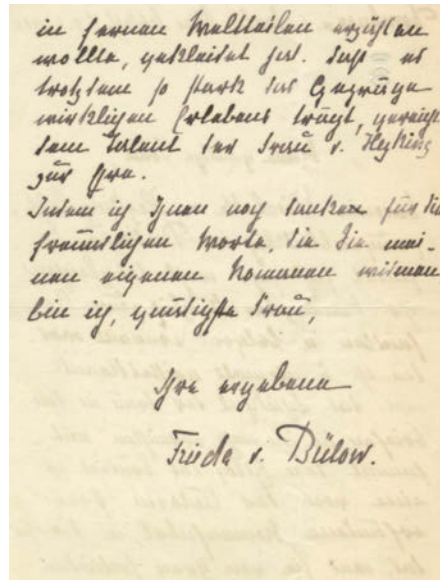 in fernen Weltteilen erzählen
wollte, gekleidet hat. Daß es
trotzdem so stark das Gepräge
wirklichen Erlebens trägt, gereicht
dem Talent der Frau v. Heyking
zur Ehre.
Indem ich Ihnen noch danke für die
freundlichen Worte, die Sie mei-
nen eigenen Romanen widmen
bin ich, gnädigste Frau,
Ihre ergebene
Frieda v. Bülow.